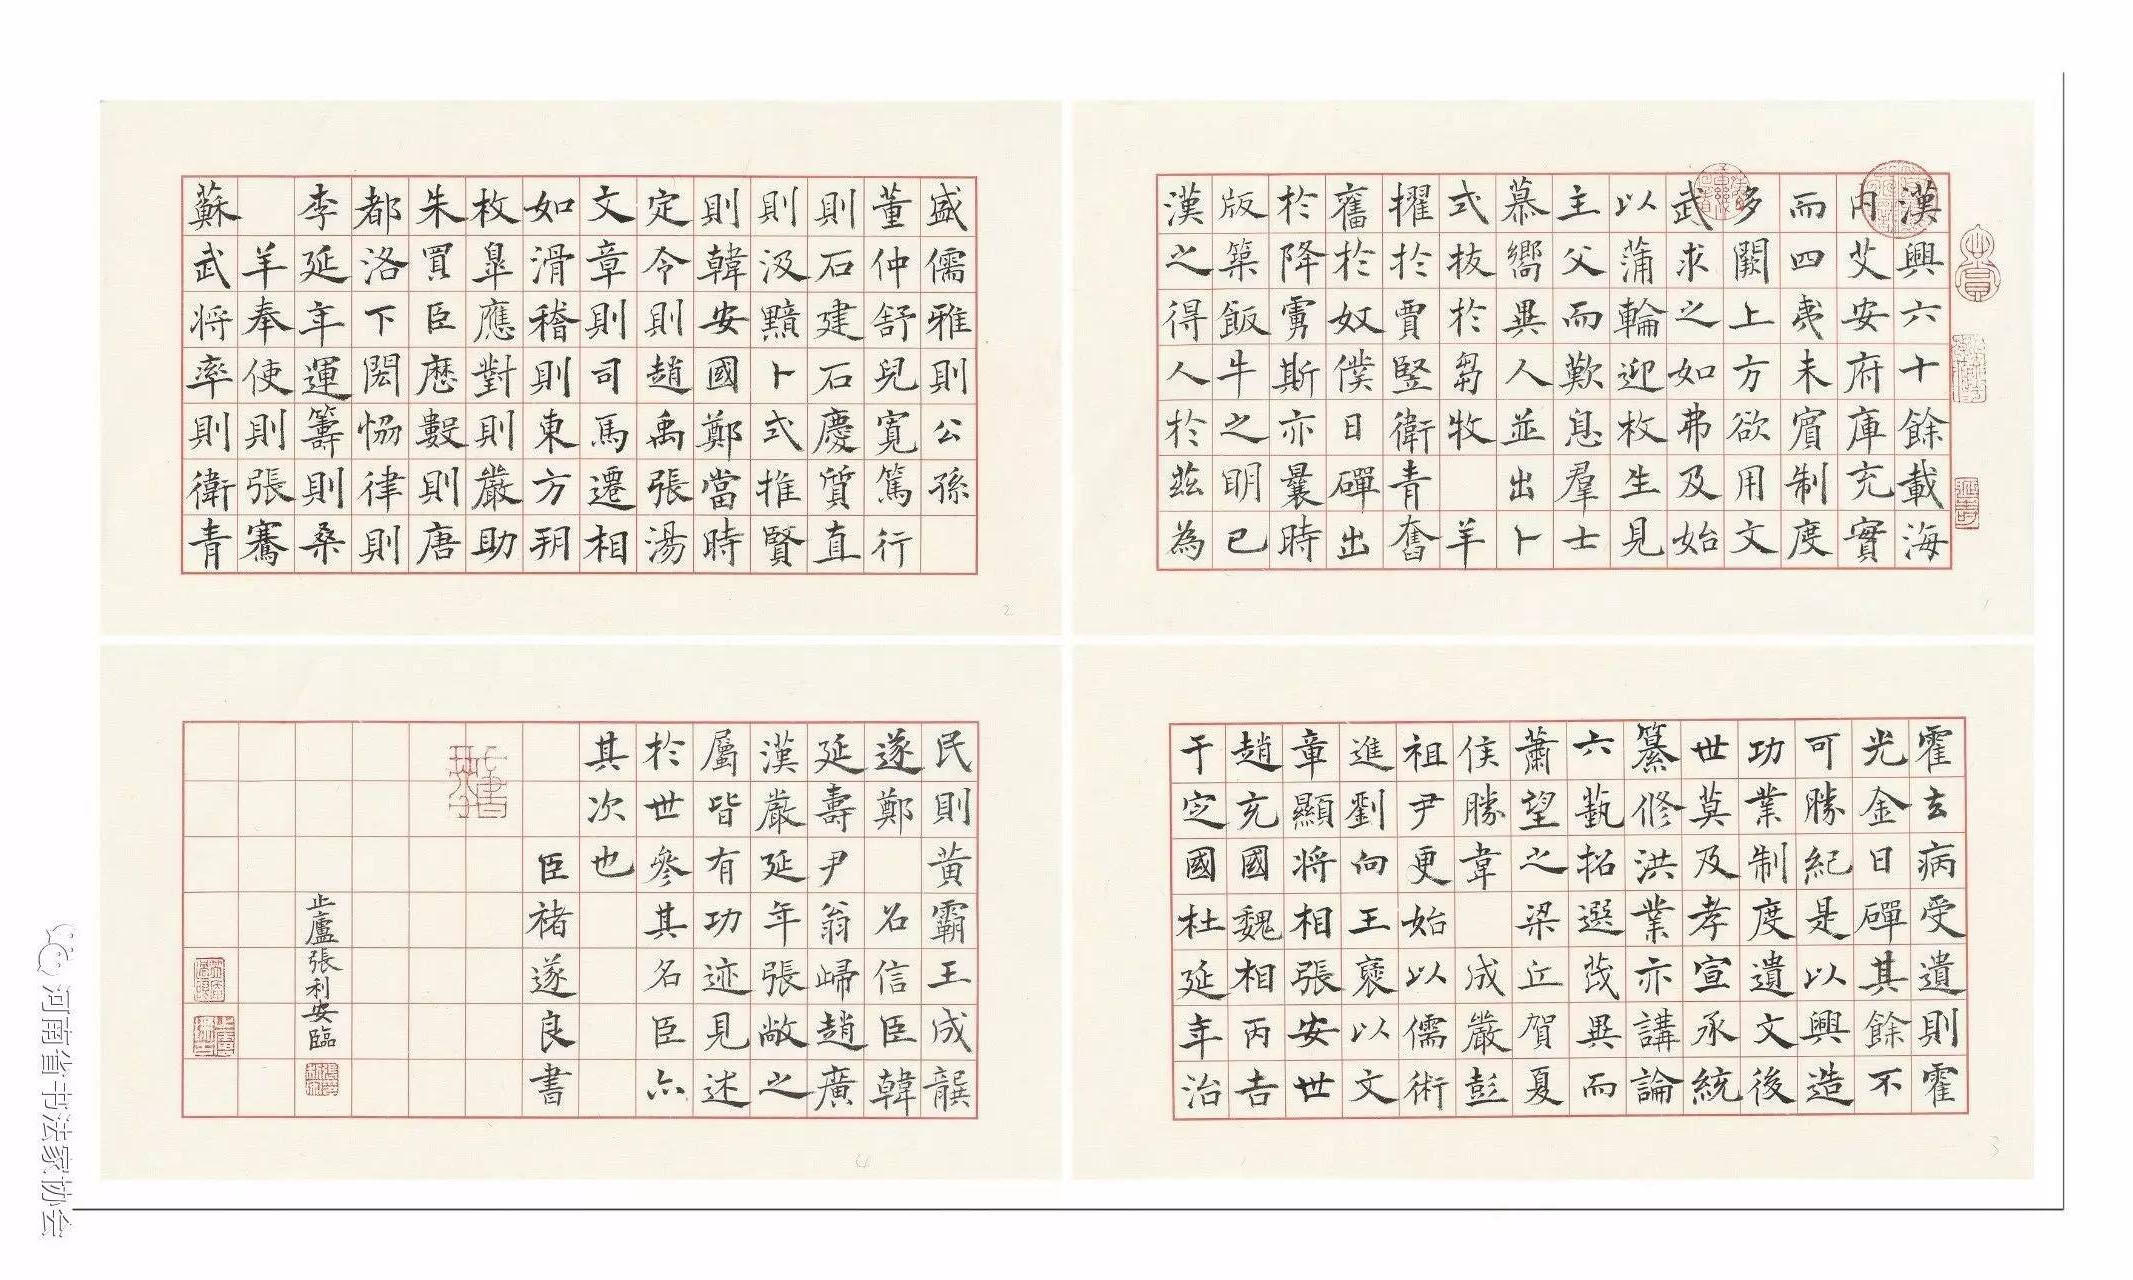 漢興六十餘載海
内艾安府庫充實
而四夷未賓制度
多闕上方欲用文
武求之如弗及始
以蒲輪迎枚生見
主父而歎息羣士
慕嚮異人並出卜
式拔於芻牧 羊
擢於賈竪衛青奮
舊於奴僕日磾出
於降虜斯亦曩時
版築飯牛之明已
漢之得人於兹為
盛儒雅則公孫
董仲舒兒寬篤行
則石建石慶質直
則汲黯卜式推賢
則韓安國鄭當時
定令則趙禹張湯
文章則司馬遷相
如滑稽則東方朔
枚皐應對則嚴助
朱買臣歷數則唐
都洛下閎恊律則
李延年運籌則桑
羊奉使則張騫
蘇武将率則衛青
霍去病受遺則霍
光金日磾其餘不
可勝紀是以興造
功業制度遺文後
世莫及孝宣承統
纂修洪業亦講論
六藝招選茂異而
蕭望之梁丘賀夏
侯勝韋 成嚴彭
祖尹更始以儒術
進劉向王褒以文
章顯将相張安世
趙充國魏相丙吉
于定國杜延年治
民則黄霸王成龔
遂鄭 召信臣韓
延壽尹翁歸趙廣
漢嚴延年張敞之
屬皆有功迹見述
於世參其名臣亦
其次也
臣褚遂良書
止廬張利安臨
河南省书法家协会